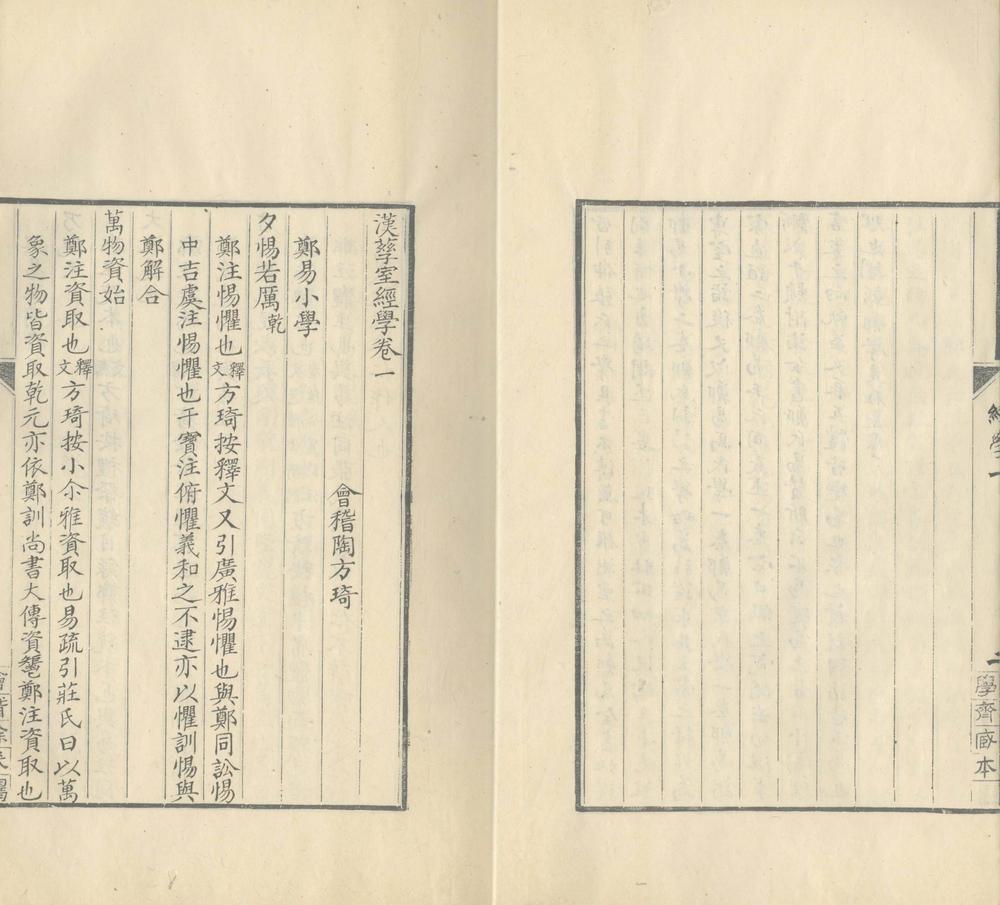 經學一
二
學齋底本
漢孳室經學卷一
會稽陶方琦
鄭易小學
夕惕若厲乾
鄭注惕懼也釋文方琦按釋文又引廣雅惕懼也與鄭同訟惕
中吉虞注惕懼也干寶注俯懼義和之不逮亦以懼訓惕與
鄭解合
萬物資始
鄭注資取也釋文方琦按小尒雅資取也易疏引莊氏曰以萬
象之物皆資取乾元亦依鄭訓尚書大傳資鬯鄭注資取也